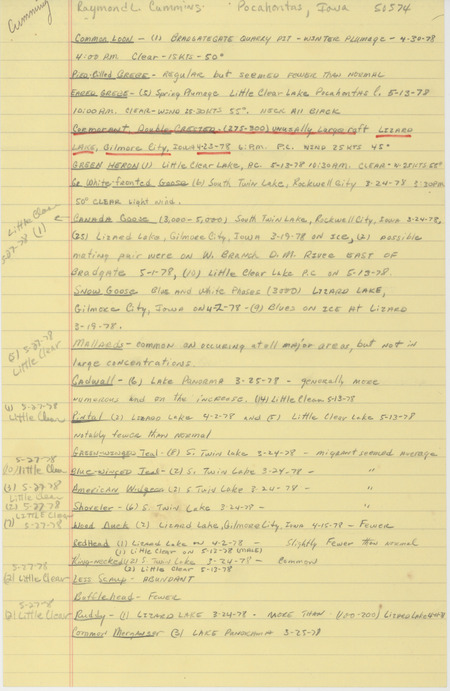 Cumming
Raymond L. Cummins Pocahontas, Iowa 50574
Common Loon - (1) Bradgate Quarry Pit - Winter Plumage - 4-30-78
4:00 P.M. Clear - 15 KTS - 50°
Pied-Billed Grebe - Regular but seemed fewer than normal
Eared Grebe - (5) Spring Plumage Little Clear Lake Pocahontas C. 5-13-78
10:00 A.M. Clear - Wind 25-30 KTS 55°. Neck All Black
Cormorant Double Crested - (275-300) Unusually Large raft Lizard
Lake, Gilmore City, Iowa 4-23-78 6: P.M. P.C. Wind 25 KTS 45°
Green Heron (1) Little Clear Lake, P.C. 5-13-78 10:30 A.M. Clear - W 25 KTS 55°
Gr. White fronted Goose (6) South Twin Lake, Rockwell City 3-24-78 3:30 P.M.
50° Clear Light wind.
Little Clear
5-27-78 (1)
Canada Goose (3,000-5,000) South Twin Lake, Rockwell City, Iowa 3-24-78,
(25) Lizard Lake, Gilmore City, Iowa 3-19-78 on ice, (2) possible
mating pair were on W. Branch D.M. River East of
Bradgate 5-1-78, (10) Little Clear Lake P.C. on 5-13-78.
Snow Goose Blue and White Phases (3500) Lizard Lake,
Gilmore City, Iowa on 4-2-78 - (9) Blues on Ice at Lizard
3-19-78.
(5) 5-27-78
Little Clear
Mallards - common on occuring at all major areas, but not in
large concentrations.
Gadwall - (6) Lake Panorma 3-25-78 - generally more
numerous and on the increase. (14) Little Clear 5-13-78
(1) 5-27-78
Little Clear
Pintal - (2) Lizard Lake 4-2-78 and (5) Little Clear Lake 5-13-78
notably fewer than normal
Green-winged Teal - (8) S. Twin Lake 3-24-78 - migrant seemed average
5-27-78
(10) Little Clear
Blue-winged Teal - (2) S. Twin Lake 3-24-78 - "
(3) 5-27-78
Little Clear
American Widgeon (2) S Twin Lake 3-24-78 - "
(2) 5-27-78
Little Clear
Shoveler - (6) S. Twin Lake 3-24-78 - "
(7) 5-27-78
Wood Duck (2) Lizard Lake, Gilmore City, Iowa 4-15-78 - Fewer
Redhead (1) Lizard Lake on 4-2-78 - Slightly Fewer than normal
(1) Little Clear on 5-13-78 (male)
Ring-necked (2) S Twin Lake 3-24-78 - Common
(2) Little Clear 5-13-78
5-27-78
(2) Little Clear
Less Scaup - Abundant
Bufflehead - Fewer
5-27-78
(2) Little Clear
Ruddy - (1) Lizard Lake 3-24-78 - More than (100-200) Lizard Lake 4-4-78
Common Merganser (3) Lake Panorama 3-25-78